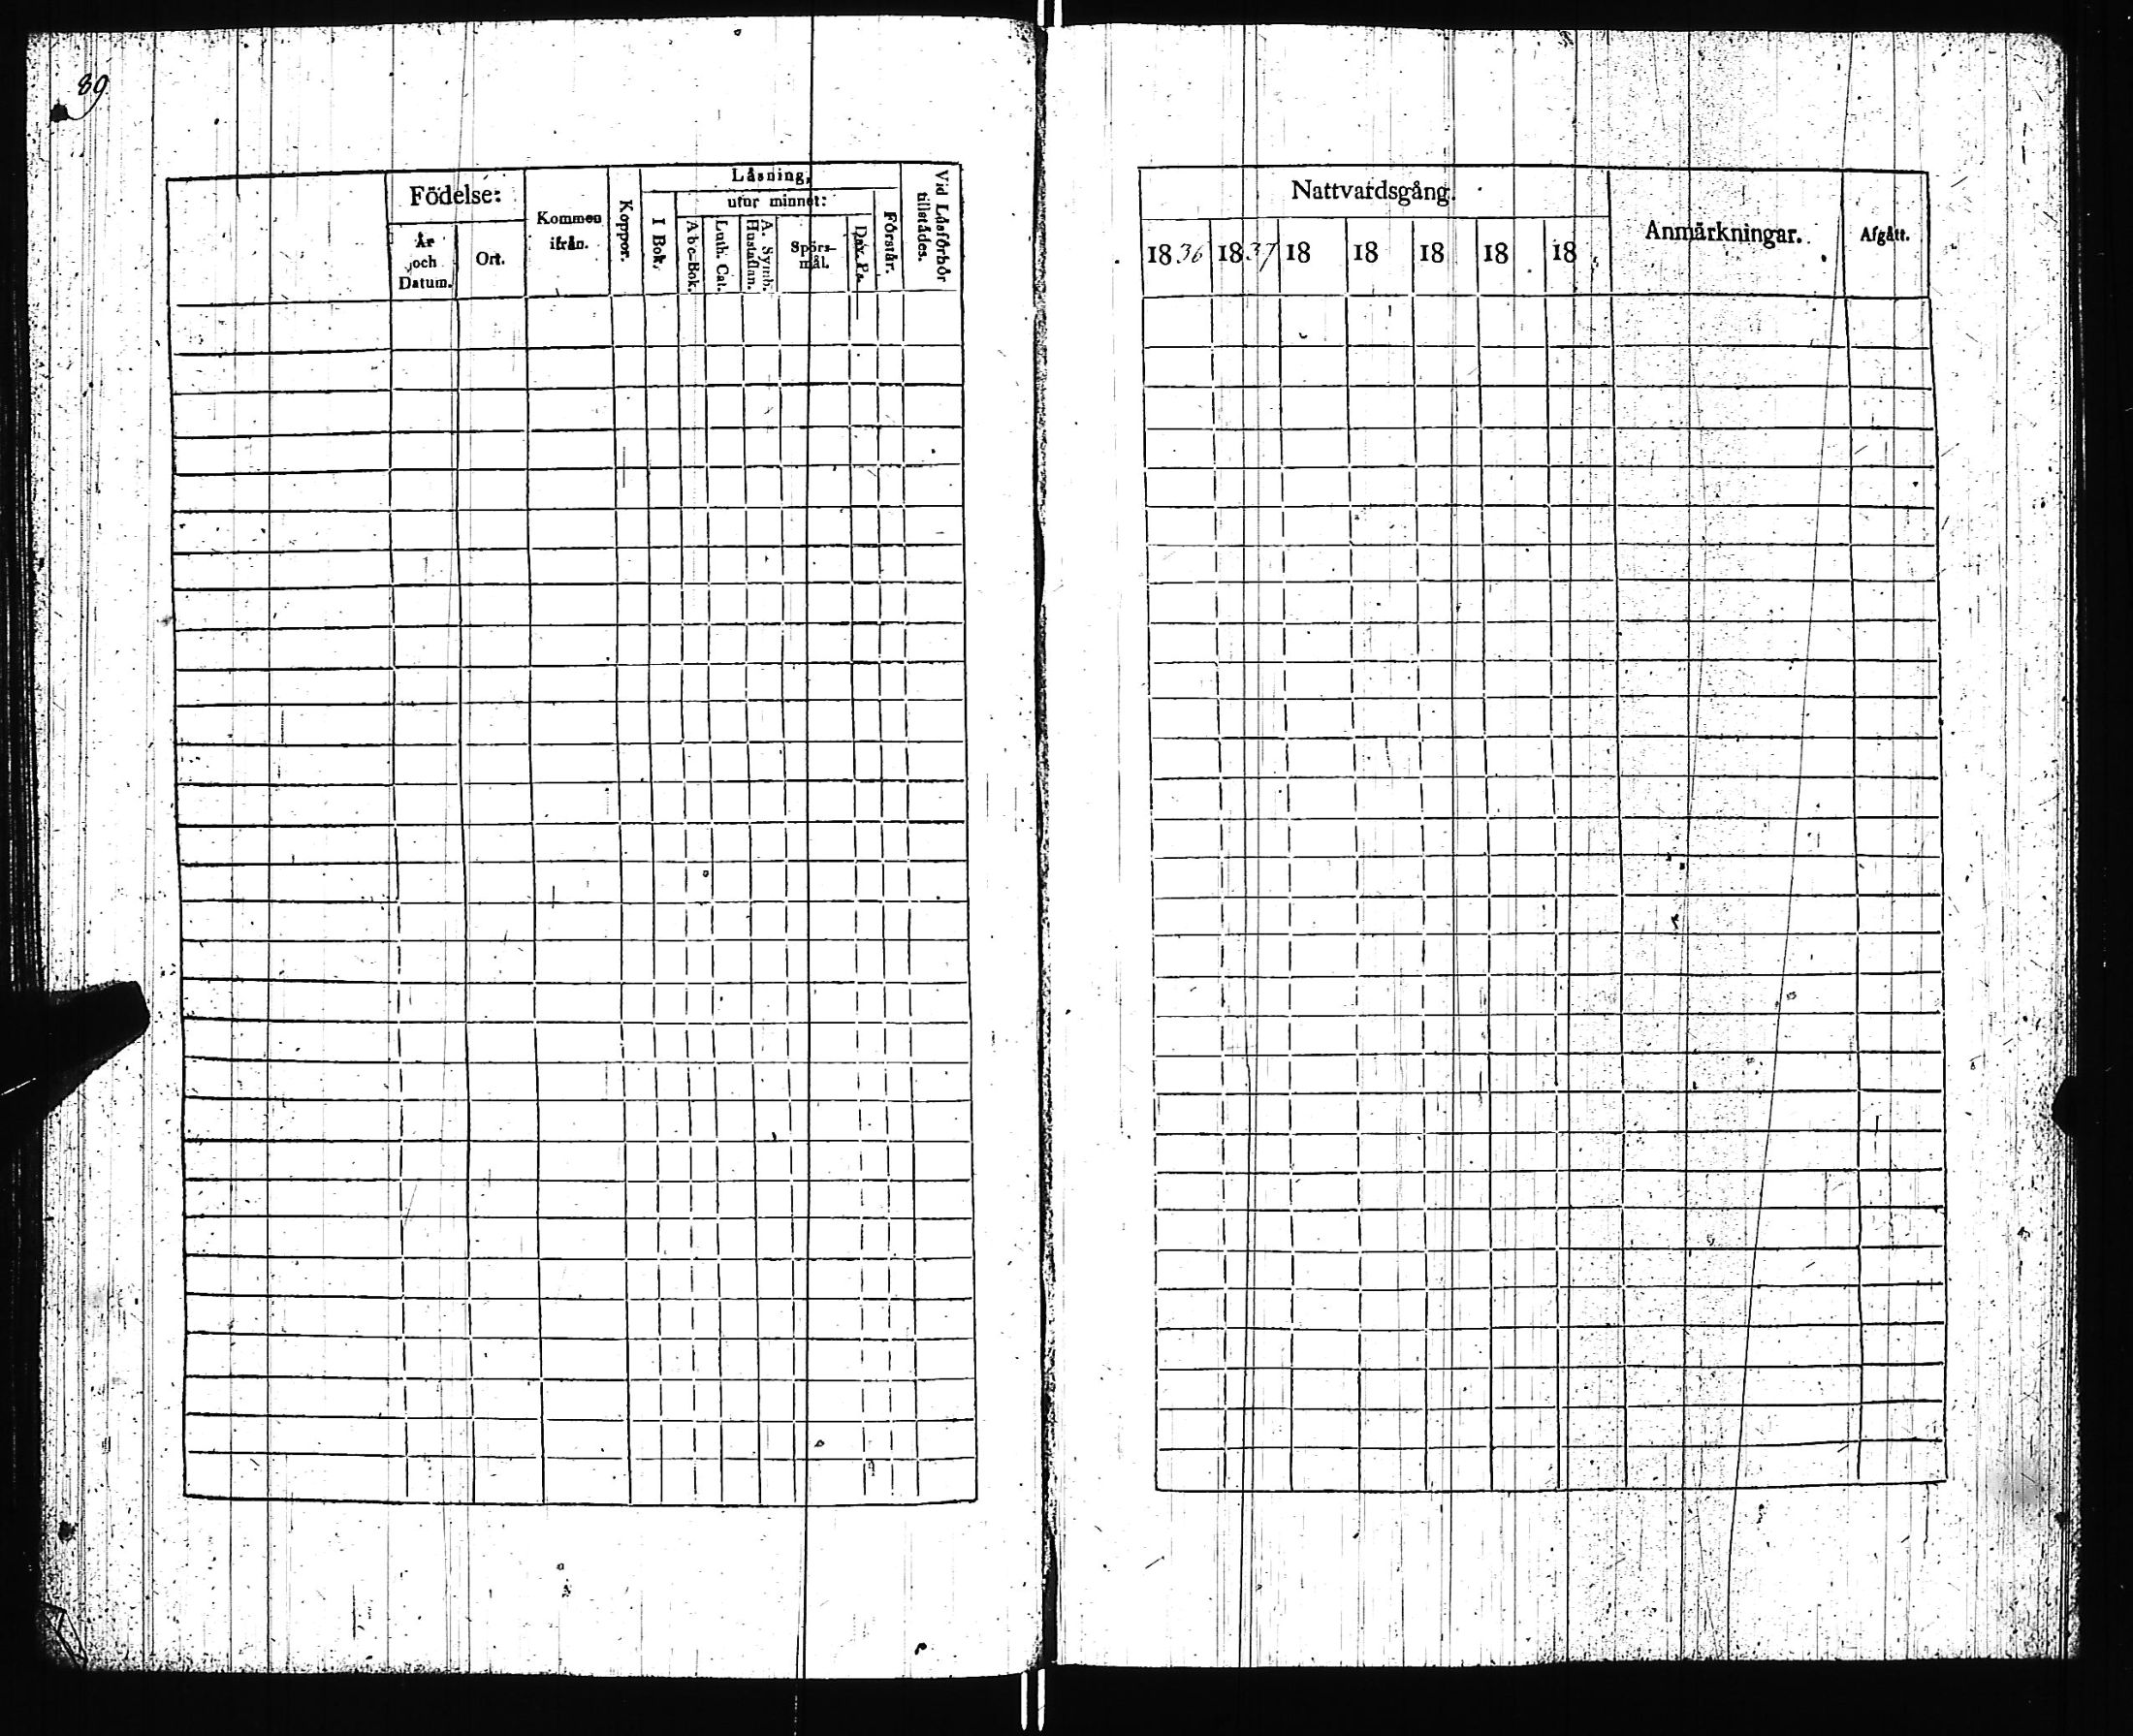 89
Födelse:
År och Datum.
Ort.
Kommen ifrån.
Koppor.
Läsning,
I Bok.
utur minnet:
Abc-Bok.
Luth. Cat.
A. Symb. Hustaflan.
Spörs-mål.
Dav. Ps.
Förstår.
Vid Läsförhör tillstädes.
Nattvardsgång.
1836 1837 18 18 18 18 18
Anmärkningar.
Afgått.